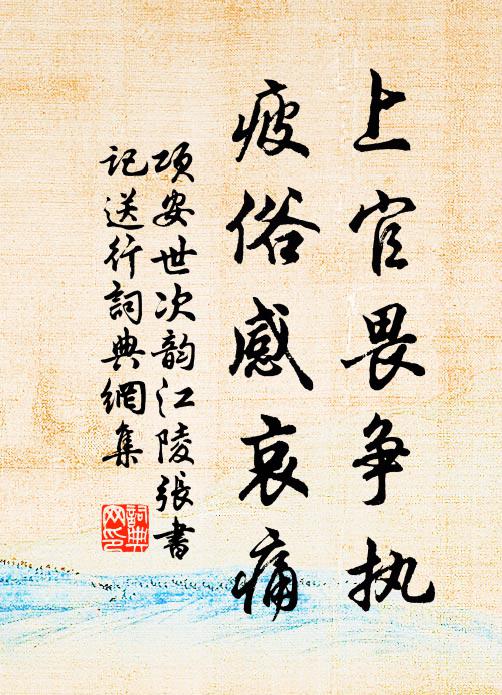 上官畏争执
疲俗感哀痛
项安世次韵江陵張書
记送行詞典網集
詞典网印